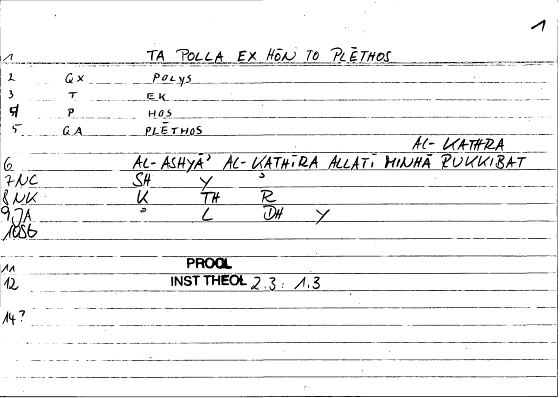 1
1 TA POLLA EX HŌN TO PLĒTHOS
2 QX POLYS
3 T EK
4 P HOS
5 QA PLĒTHOS
AL-KATHRA
6 AL-ASHYĀ' AL-KATHĪRA ALLATĪ MINHĀ RUKKIBAT
7 NC SH Y '
8 NK K TH R
9 JA ' L DH Y
10
11 PROCL
12 INST THEOL 2.3: 1.3
14?